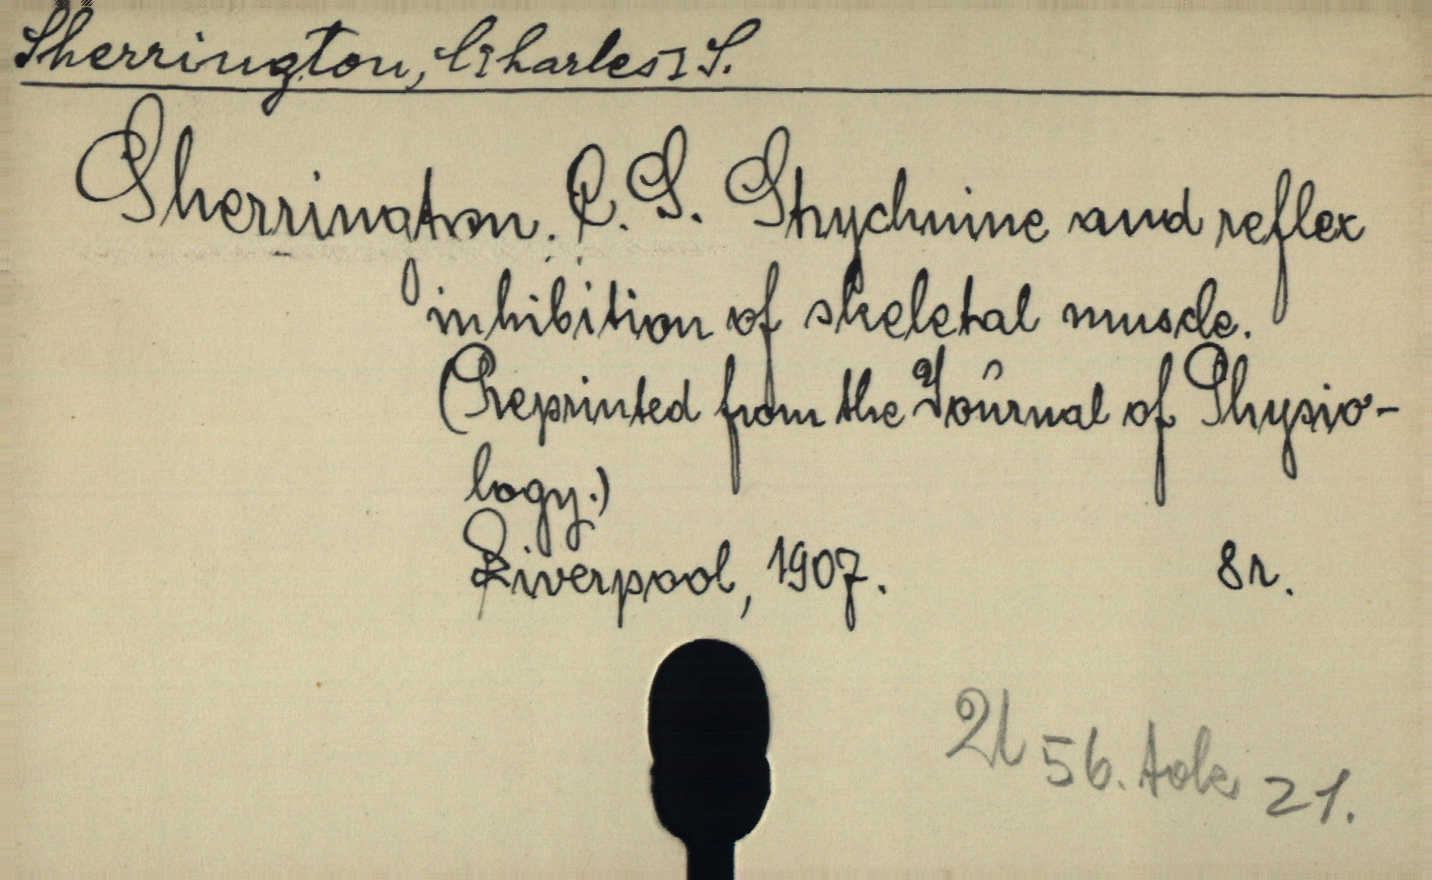 Sherrington, C[harles] S.
Sherrington. C. S. Strychnine and reflex
inhibition of skeletal muscle.
(Reprinted from the Journal of Physio-
logy.)
Liverpool, 1907. 8r.
56. 21.